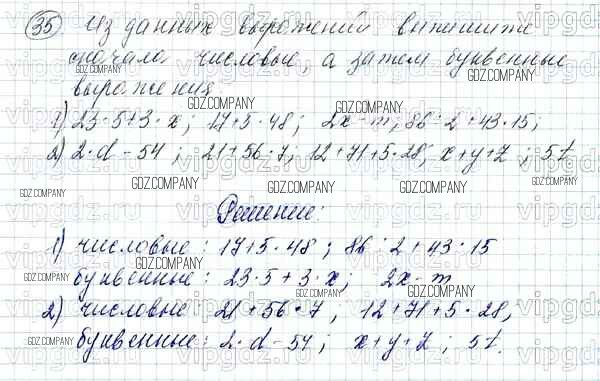 35 Из данных выражений выпишите
сначала числовые, а затем буквенные
выражения
1) 23·5+3·x; 17+5·48; 2x-m; 86·2+43·15;
2) 2·d-54; 21+56·7; 12+71+5·28; x+y+z; 5t.
Решение:
1) числовые: 17+5·48; 86·2+43·15
буквенные: 23·5+3·x; 2x-m
2) числовые: 21+56·7; 12+71+5·28;
буквенные: 2·d-54; x+y+z; 5t.